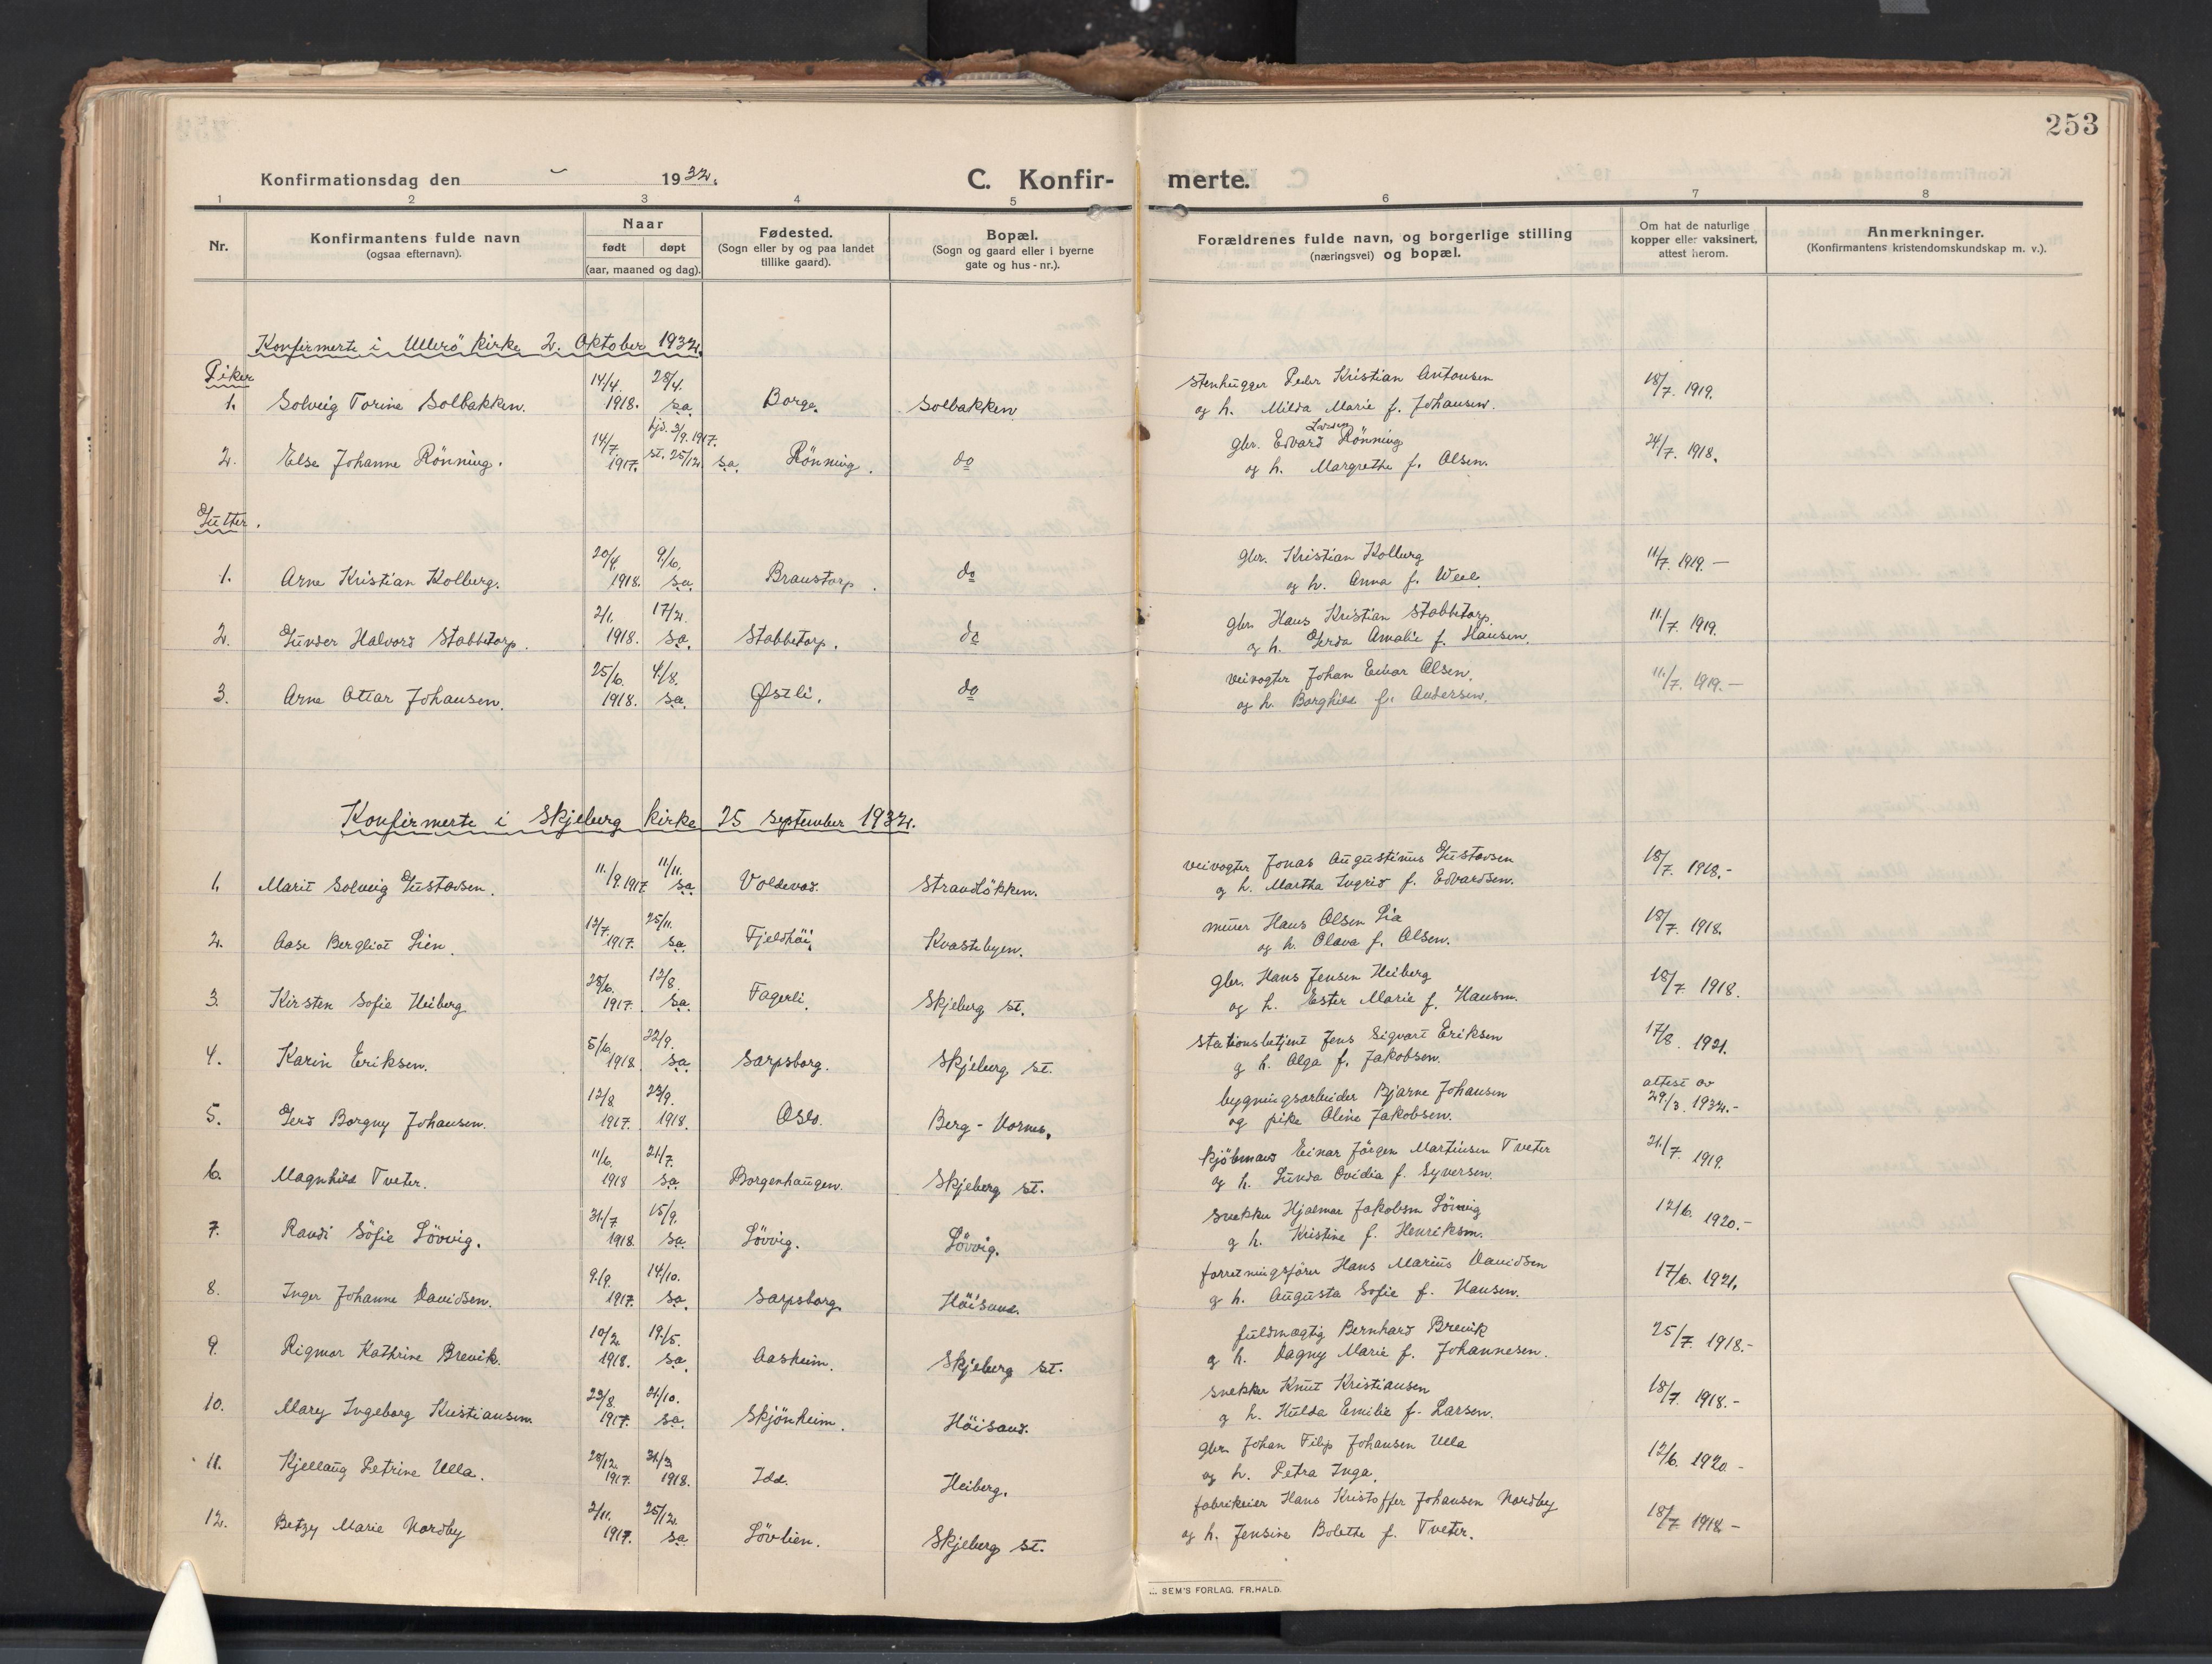 253
Konfirmationsdag den 1932. C. Konfirmerte.
1 2 3 4 5 6 7 8
Nr. Konfirmantens fulde navn (ogsaa efternavn). Naar født døpt (aar, maaned og dag). Fødested. (Sogn eller by og paa landet tillike gaard). Bopæl. (Sogn og gaard eller i byerne gate og hus-nr.). Forældrenes fulde navn, og borgerlige stilling (næringsvei) og bopæl. Om hat de naturlige kopper eller vaksinert, attest herom. Anmerkninger. (Konfirmantens kristendomskundskap m. v.).
Konfirmerte i Ullerö kirke 2. Oktober 1932.
Piker
1. Solveig Torine Solbakken. 14/4. 1918. 28/4. sa. Borge. Solbakken stenhugger Peder Kristian Antonsen
og h. Milda Marie f. Johansen. 18/7. 1919.
2. Else Johanne Rönning. 14/7. 1917. hjd. 2/9. 1917. st. 25/12. sa. Rönning. do gbr. Edvard Larsen Rönning
og h. Margrethe f. Olsen. 24/7. 1918.
Gutter.
1. Arne Kristian Kolberg. 20/4. 1918. 9/6. sa. Braustorp. do gbr. Kristian Kolberg
og h. Anna f. Weel. 11/7. 1919. –
2. Gunder Halvord Stabbetorp. 2/1. 1918. 17/2. sa. Stabbetorp. do gbr. Hans Kristian Stabbetorp.
og h. Gerda Amalie f. Hansen. 11/7. 1919.
3. Arne Ottar Johansen. 25/6. 1918. 4/8. sa. Østli. do veivogter Johan Edvar Olsen.
og h. Borghild f. Andersen. 11/7. 1919. –
Konfirmerte i Skjeberg kirke 25 september 1932.
1. Marit Solveig Gustavsen. 11./9. 1917 11/11. sa Voldevad. Strandlökken. veivogter Jonas Augustinus Gustavsen
og h. Martha Ingrid f. Edvardsen. 18/7. 1918. –
2. Aase Bergliot Lien. 12/7. 1917. 25/11. sa Fjeldhöi. Kvastebyen. murer Hans Olsen Lia
og h. Olava f. Olsen. 18/7. 1918.
3. Kirsten Sofie Heiberg 28/6. 1917. 12/8. sa. Fagerli. Skjeberg st. gbr. Hans Jensen Heiberg
og h. Ester Marie f. Hansen. 18/7. 1918.
4. Karin Eriksen. 5/6. 1918 22/9. sa. Sarpsborg. Skjeberg st. stationsbetjent Jens Sigvart Eriksen
og h. Olga f. Jakobsen. 17/8. 1921.
5. Gerd Borgny Johansen. 12/8 1917. 29/9. 1918. Oslo. Berg - Hornes. bygningsarbeider Bjarne Johansen
og pike Oline Jakobsen. attest av 29/3. 1932. –
6. Magnhild Tveter. 11/6. 1918 21/7. sa. Borgenhaugen. Skjeberg st. kjöbmand Einar Jörgen Martinsen Tveter
og h. Lunda Ovidia f. Syversen. 21./7. 1919.
7. Randi Sofie Lövvig. 31./7 1918. 15/9. sa. Lövvig. Lövvig. snekker Hjalmar Jakobsen Lövvig
og h. Kristine f. Henriksen. 12/6. 1920. –
8. Inger Johanne Davidsen. 9./9. 1917. 14/10. sa. Sarpsborg. Höisand. forretningsförer Hans Marius Davidsen
og h. Augusta Sofie f. Hansen. 17/6. 1921.
9. Rigmor Kathrine Brevik. 10/2. 1918. 19./5. sa. Aasheim. Skjeberg st. fuldmægtig Bernhard Brevik
og h. Dagny Marie f. Johannesen. 25/7. 1918. –
10. Mary Ingeborg Kristiansen. 23/8. 1917. 21/10. sa. Skjönheim. Höisand. snekker Knut Kristiansen
og h. Hulda Emilie f. Larsen. 18/7. 1918. –
11. Kjellaug Petrine Ulla. 28/12. 1917. 31/3. 1918. Idd. Heiberg. gbr. Johan Filip Johansen Ulla
og h. Petra Inga. 12/6. 1920 –
12. Betzy Marie Nordby 2/11. 1917. 25/12. sa Lövlien. Skjeberg st. fabrikeier Hans Kristoffer Johansen Nordby
og h. Jensine Bolette f. Tveter. 18/7 1918 –
SEM'S FORLAG. FR.HALD.